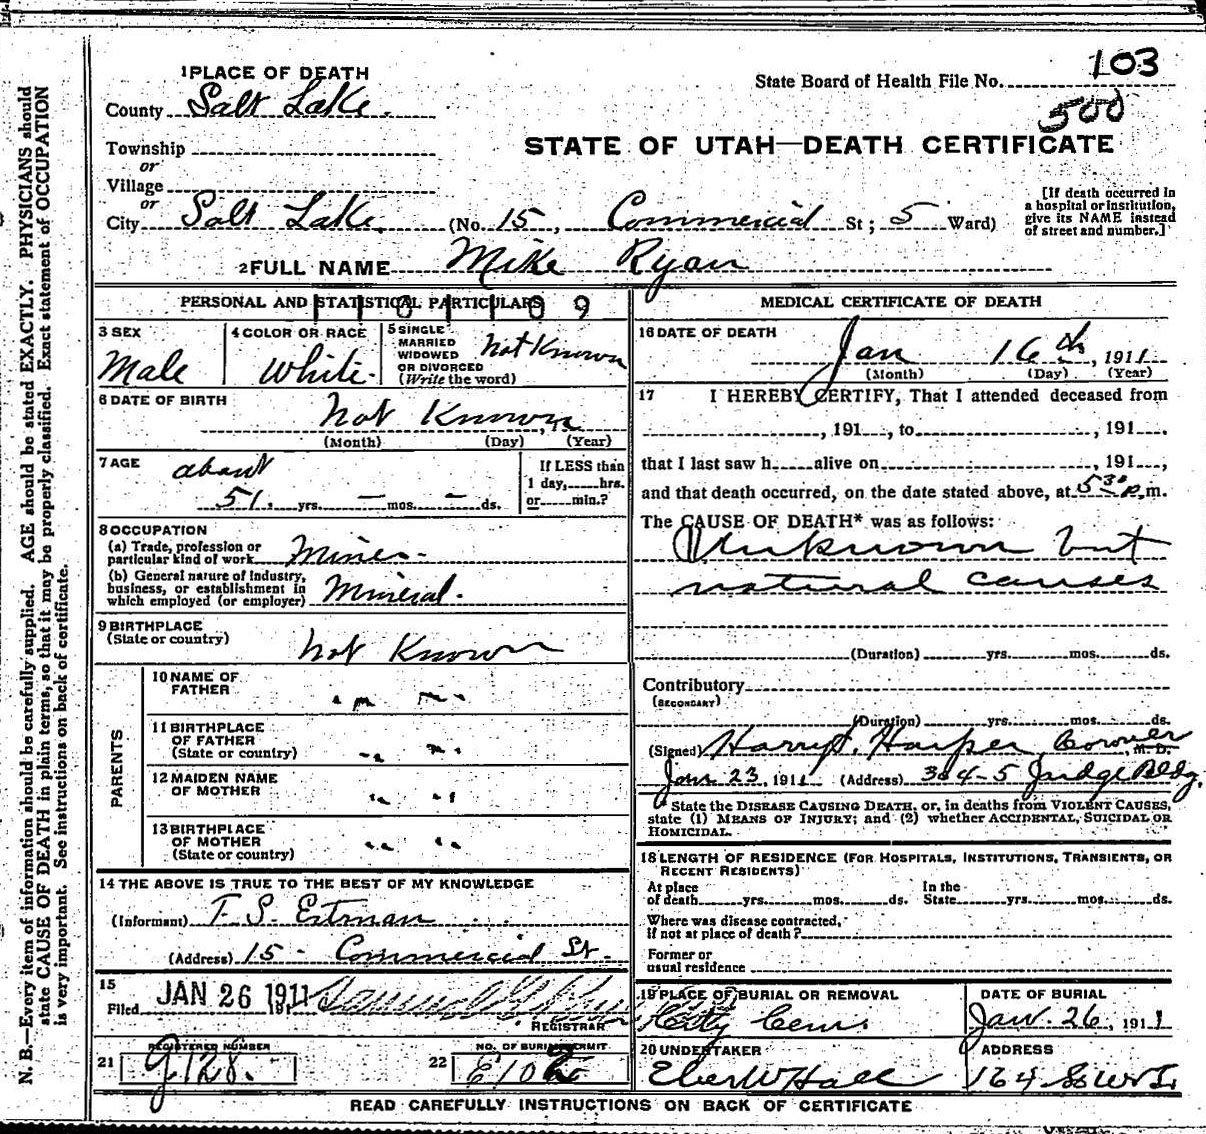 1 PLACE OF DEATH
County Salt Lake.
Township
or
Village
or
City Salt Lake. (No. 15, Commercial St; 5 Ward)
State Board of Health File No. 103
500
STATE OF UTAH—DEATH CERTIFICATE
[If death occurred in
a hospital or institution,
give its NAME instead
of street and number.]
2 FULL NAME Mike Ryan
PERSONAL AND STATISTICAL PARTICULARS
3 SEX
Male
4 COLOR OR RACE
White.
5 SINGLE
MARRIED
WIDOWED
OR DIVORCED
(Write the word)
Not Known
6 DATE OF BIRTH
Not Known
(Month) (Day) (Year)
7 AGE
about
51. yrs. — mos. — ds.
If LESS than
1 day, hrs.
or min.?
8 OCCUPATION
(a) Trade, profession or
particular kind of work Miner.
(b) General nature of industry,
business, or establishment in
which employed (or employer) Mineral.
9 BIRTHPLACE
(State or country) Not Known
PARENTS
10 NAME OF
FATHER " "
11 BIRTHPLACE
OF FATHER
(State or country) " "
12 MAIDEN NAME
OF MOTHER " "
13 BIRTHPLACE
OF MOTHER
(State or country) " "
14 THE ABOVE IS TRUE TO THE BEST OF MY KNOWLEDGE
(Informant) T. S. Eitman
(Address) 15 - Commercial St.
15
Filed JAN 26 1911 191
REGISTRAR
REGISTERED NUMBER
21 G128.
NO. OF BURIAL PERMIT
22 E102
MEDICAL CERTIFICATE OF DEATH
16 DATE OF DEATH
Jan 16th, 1911
(Month) (Day) (Year)
17 I HEREBY CERTIFY, That I attended deceased from
, 191 , to , 191 .
that I last saw h alive on , 191 ,
and that death occurred, on the date stated above, at 5 30 p.m.
The CAUSE OF DEATH* was as follows:
Unknown but
natural causes
(Duration) yrs. mos. ds.
Contributory
(SECONDARY)
(Duration) yrs. mos. ds.
(Signed) Harry J. Harper Coroner M. D.
Jan 23, 1911 (Address) 304-5 Judge Bldg.
* State the DISEASE CAUSING DEATH, or, in deaths from VIOLENT CAUSES,
state (1) MEANS OF INJURY; and (2) whether ACCIDENTAL, SUICIDAL OR
HOMICIDAL.
18 LENGTH OF RESIDENCE (FOR HOSPITALS, INSTITUTIONS, TRANSIENTS, OR
RECENT RESIDENTS)
At place
of death yrs. mos. ds.
In the
State yrs. mos. ds.
Where was disease contracted,
if not at place of death?
Former or
usual residence
19 PLACE OF BURIAL OR REMOVAL
City Cem.
DATE OF BURIAL
Jan. 26, 1911
20 UNDERTAKER
Eber W Hall
ADDRESS
164 So W T.
READ CAREFULLY INSTRUCTIONS ON BACK OF CERTIFICATE
N. B.—Every item of information should be carefully supplied. AGE should be stated EXACTLY. PHYSICIANS should
state CAUSE OF DEATH in plain terms, so that it may be properly classified. Exact statement of OCCUPATION
is very important. See instructions on back of certificate.